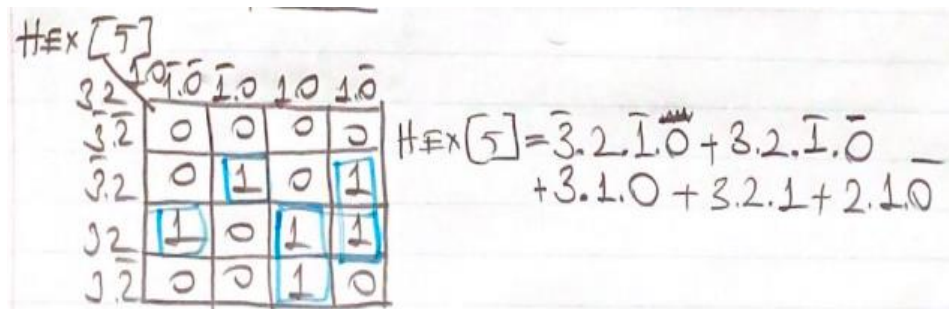 HEX[5]
1.0 1̄.0̄ 1̄.0 1.0 1.0̄
3.2
3̄.2̄ 0 0 0 0
3̄.2 0 1 0 1
3.2 1 0 1 1
3.2̄ 0 0 1 0
HEX[5]=3̄.2.1̄.0 + 3.2.1̄.0̄
+3.1.0 + 3.2.1 + 2.1.0̄